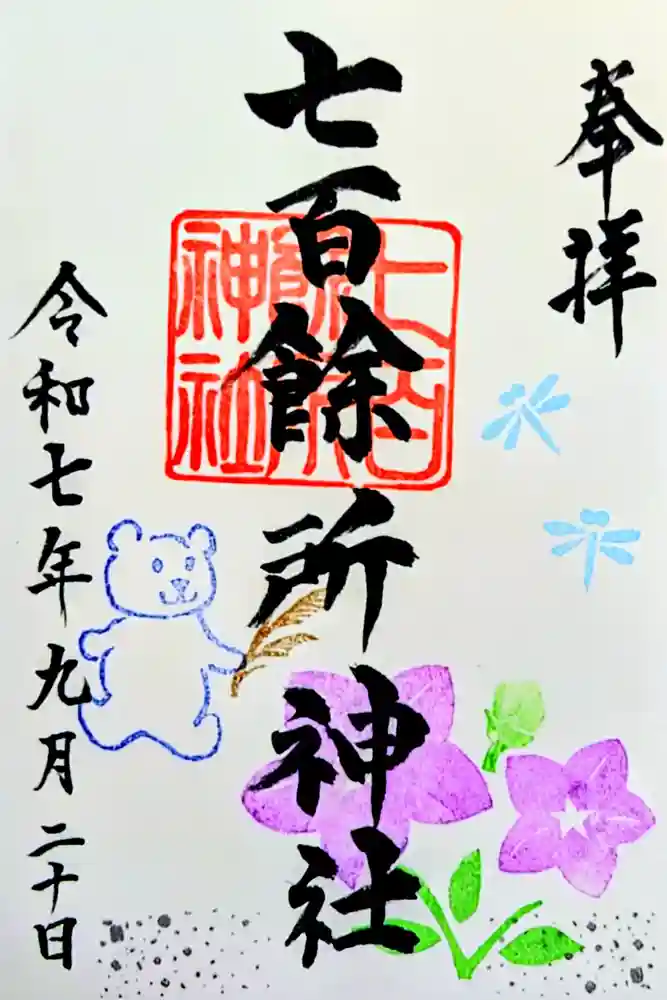 奉拝
七百餘所神社
七百
餘所
神社
令和七年九月二十日